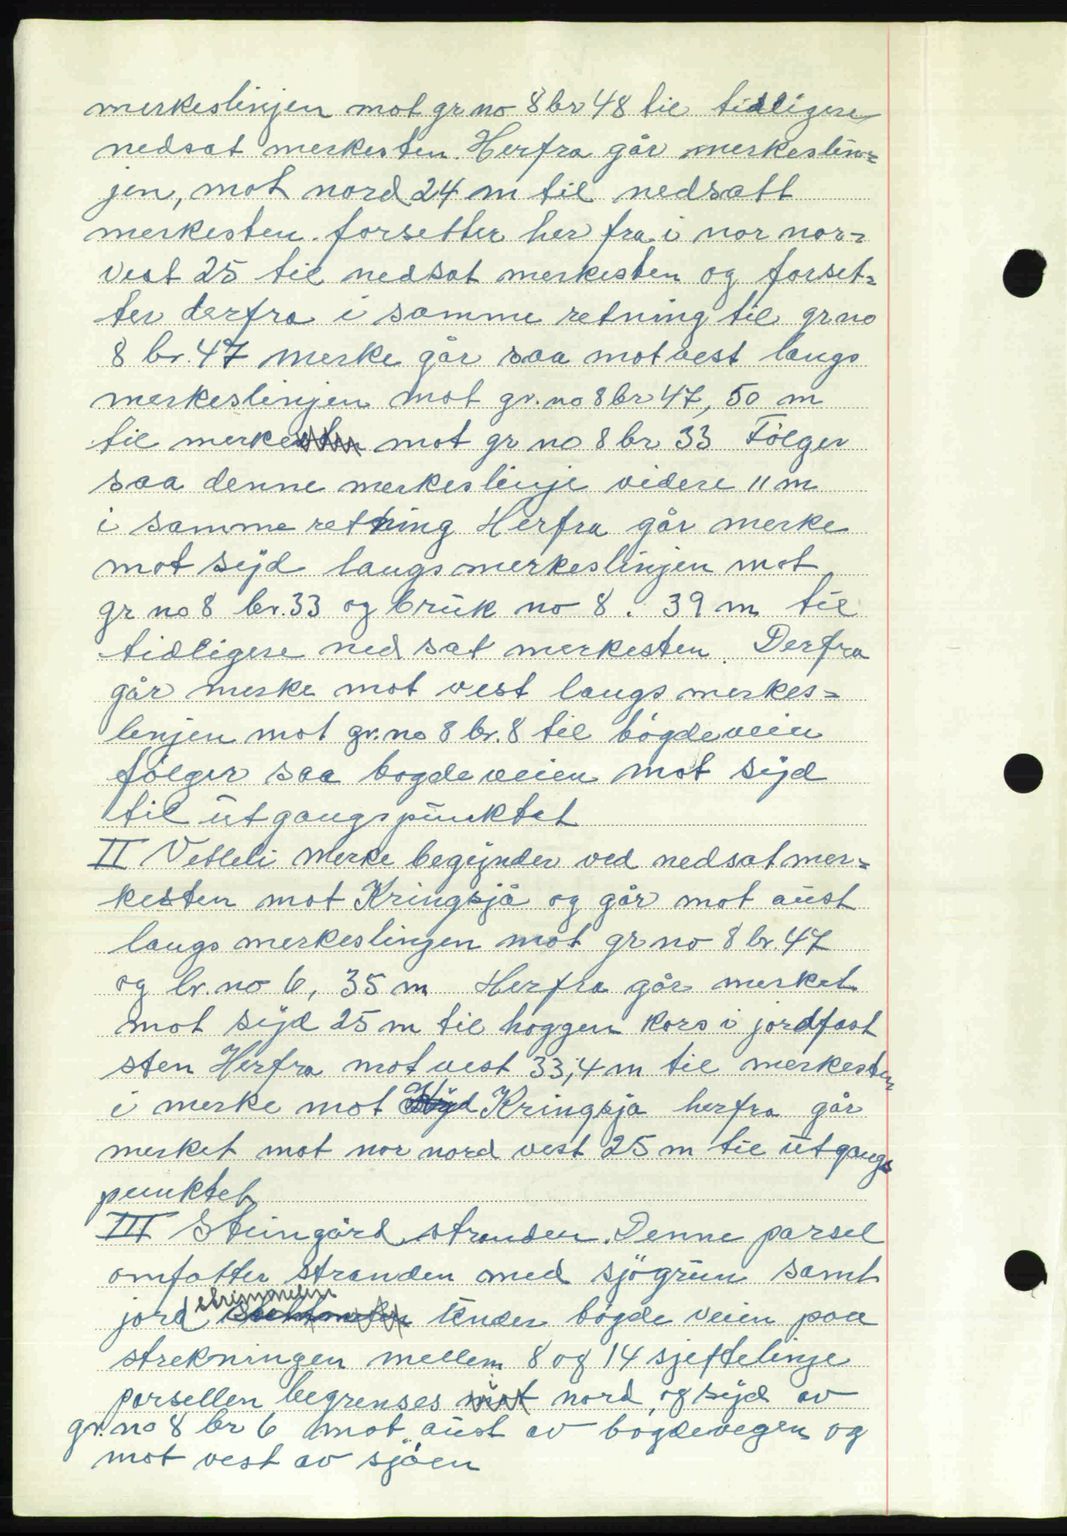 merkeslinjen mot gr no 8 br 48 til tidligere
nedsat merkesten. Herfra går merkeslin=
jen, mot nord 24 m til nedsatt
merkesten. forsetter her fra i nor nor=
vest 25 til nedsat merkesten og forset=
ter derfra i samme retning til gr no
8 br. 47 merke går saa mot vest langs
merkeslinjen mot gr. no 8 br 47, 50 m
til merke mot gr no 8 br 33 Følger
saa denne merkeslinje videre 11 m
i samme retning Herfra går merke
mot syd langs merkeslinjen mot
gr no 8 br. 33 og bruk no 8. 39 m til
tidligere ned sat merkesten. Derfra
går merke mot vest langs merkes=
linjen mot gr. no 8 br. 8 til bögdeveien
følger saa bogdeveien mot syd
til utgangspunktet
II Vetleli merke begynder ved nedsat mer=
kesten mot Kringsjå og går mot aust
langs merkeslinjen mot gr no 8 br. 47
og br. no 6, 35 m Herfra går merket
mot syd 25 m til hoggen kors i jordfast
sten Herfra mot vest 33,4 m til merkesten
i merke mot Kringsja herfra går
merket mot nor nord vest 25 m til utgangs
punktet
III Steingård stranden. Denne parsel
omfatter stranden med sjögrun samt
jord strimmelen under bögde veien paa
strekningen mellem 8 og 14 sjeftelinje
parsellen begrenses i nord, og syd av
gr. no 8 br 6 mot aust av bogdevegen og
mot vest av sjöen